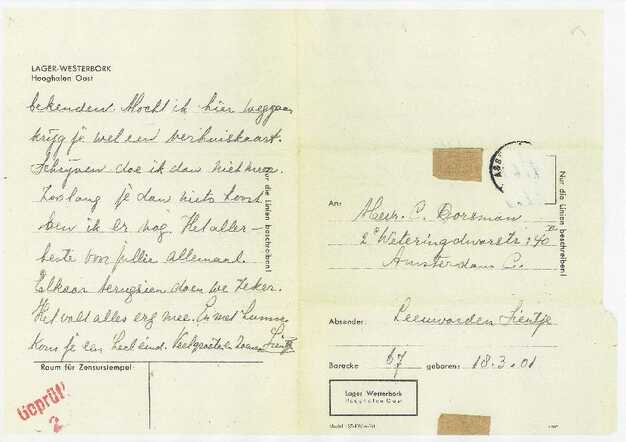 LAGER-WESTERBORK
Hooghalen Oost
bekenden. Mocht ik hier weggaan
krijg je wel een verhuiskaart.
Schrijven doe ik dan niet meer.
Zoolang je dan niets hoort
ben ik er nog. Het aller-
beste voor jullie allemaal.
Elkaar terugzien doen we zeker.
Het valt alles erg mee. En met
Kom je een heel eind. Sientje
Nur die Linien beschreiben!
Raum für Zensurstempel
Geprüft
2
Nur die Linien beschreiben!
An:
C. Dorsman
2e Weteringdwarsstr: 40
Amsterdam C.
Absender:
Leeuwarden Sientje
Baracke 67 geboren: 18.3.01
Lager Westerbork
Hooghalen Oost